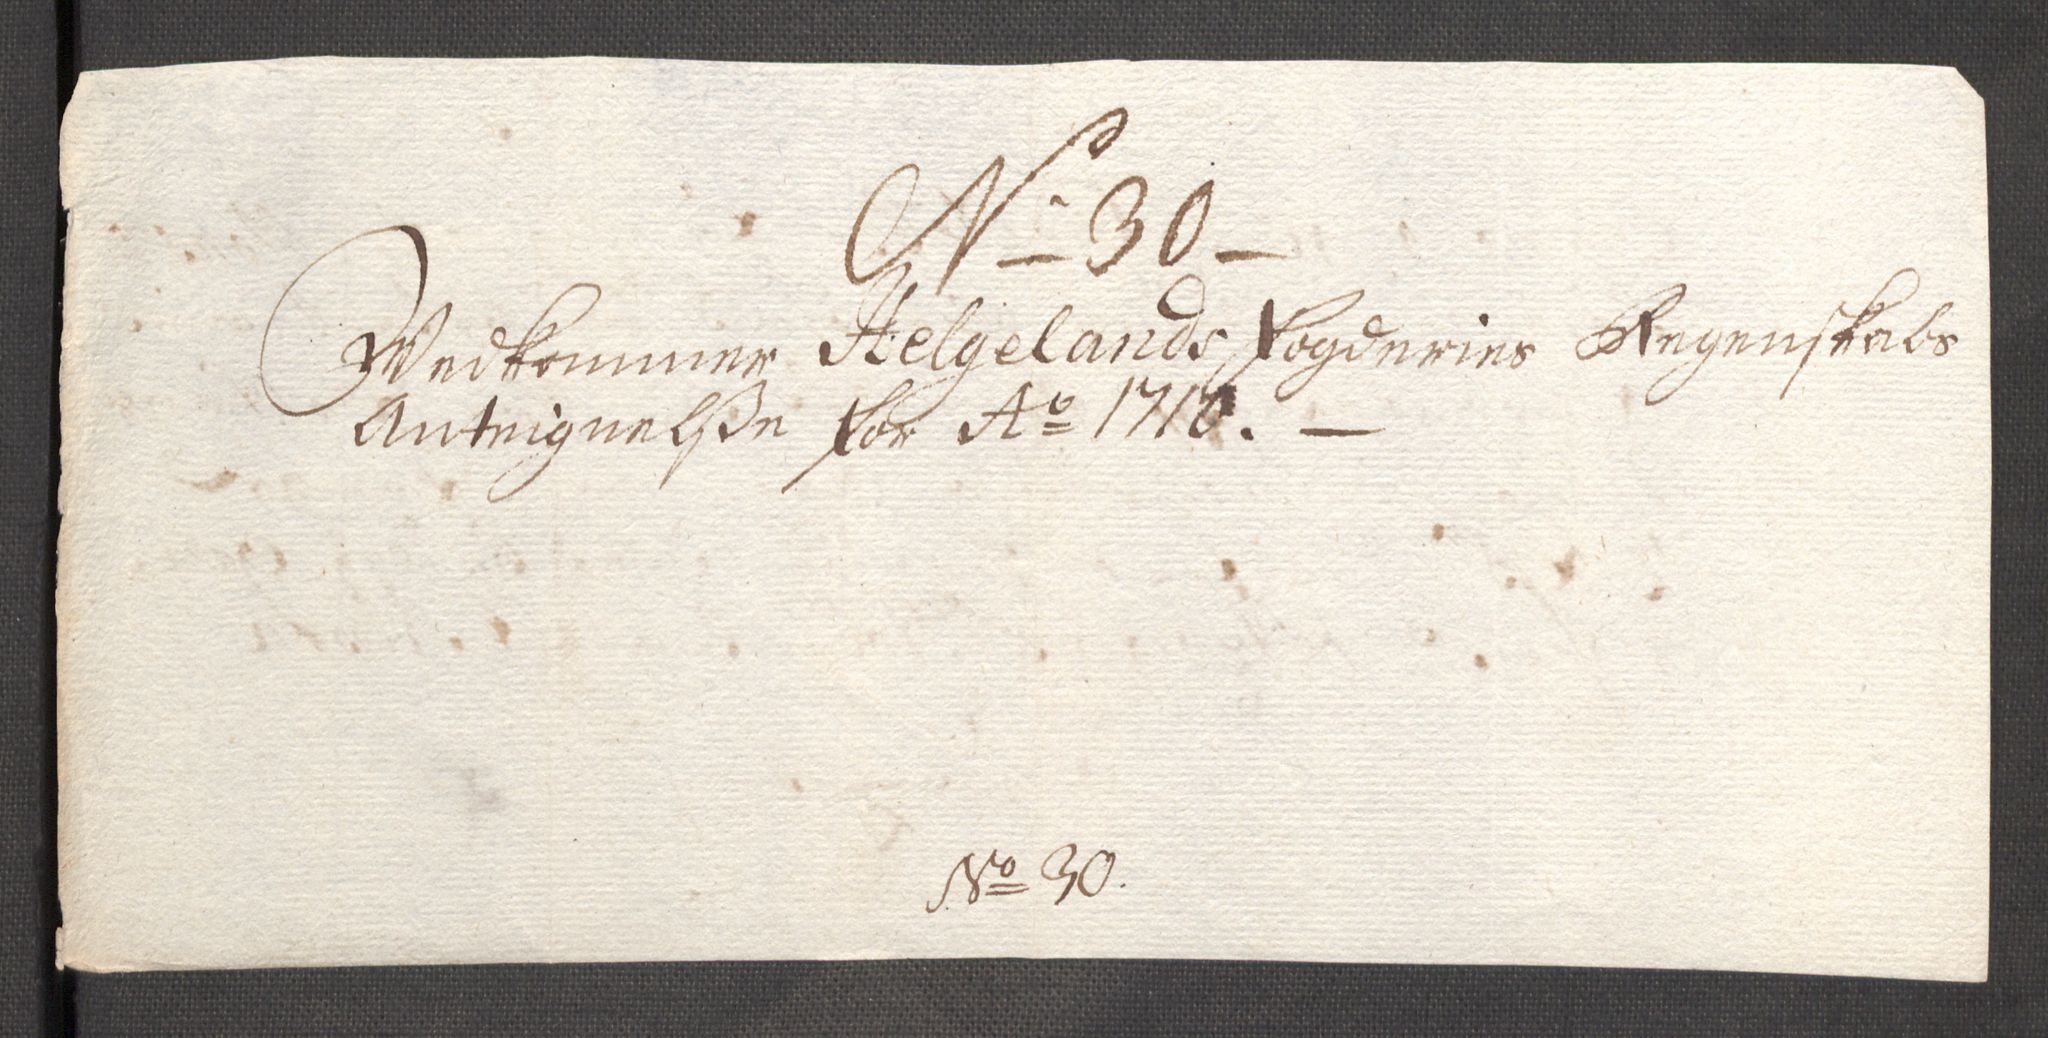 No 30
Vedkommer Helgelands fogderies Regenskabs
Anteignelsse for Ao 1710.
No 30.